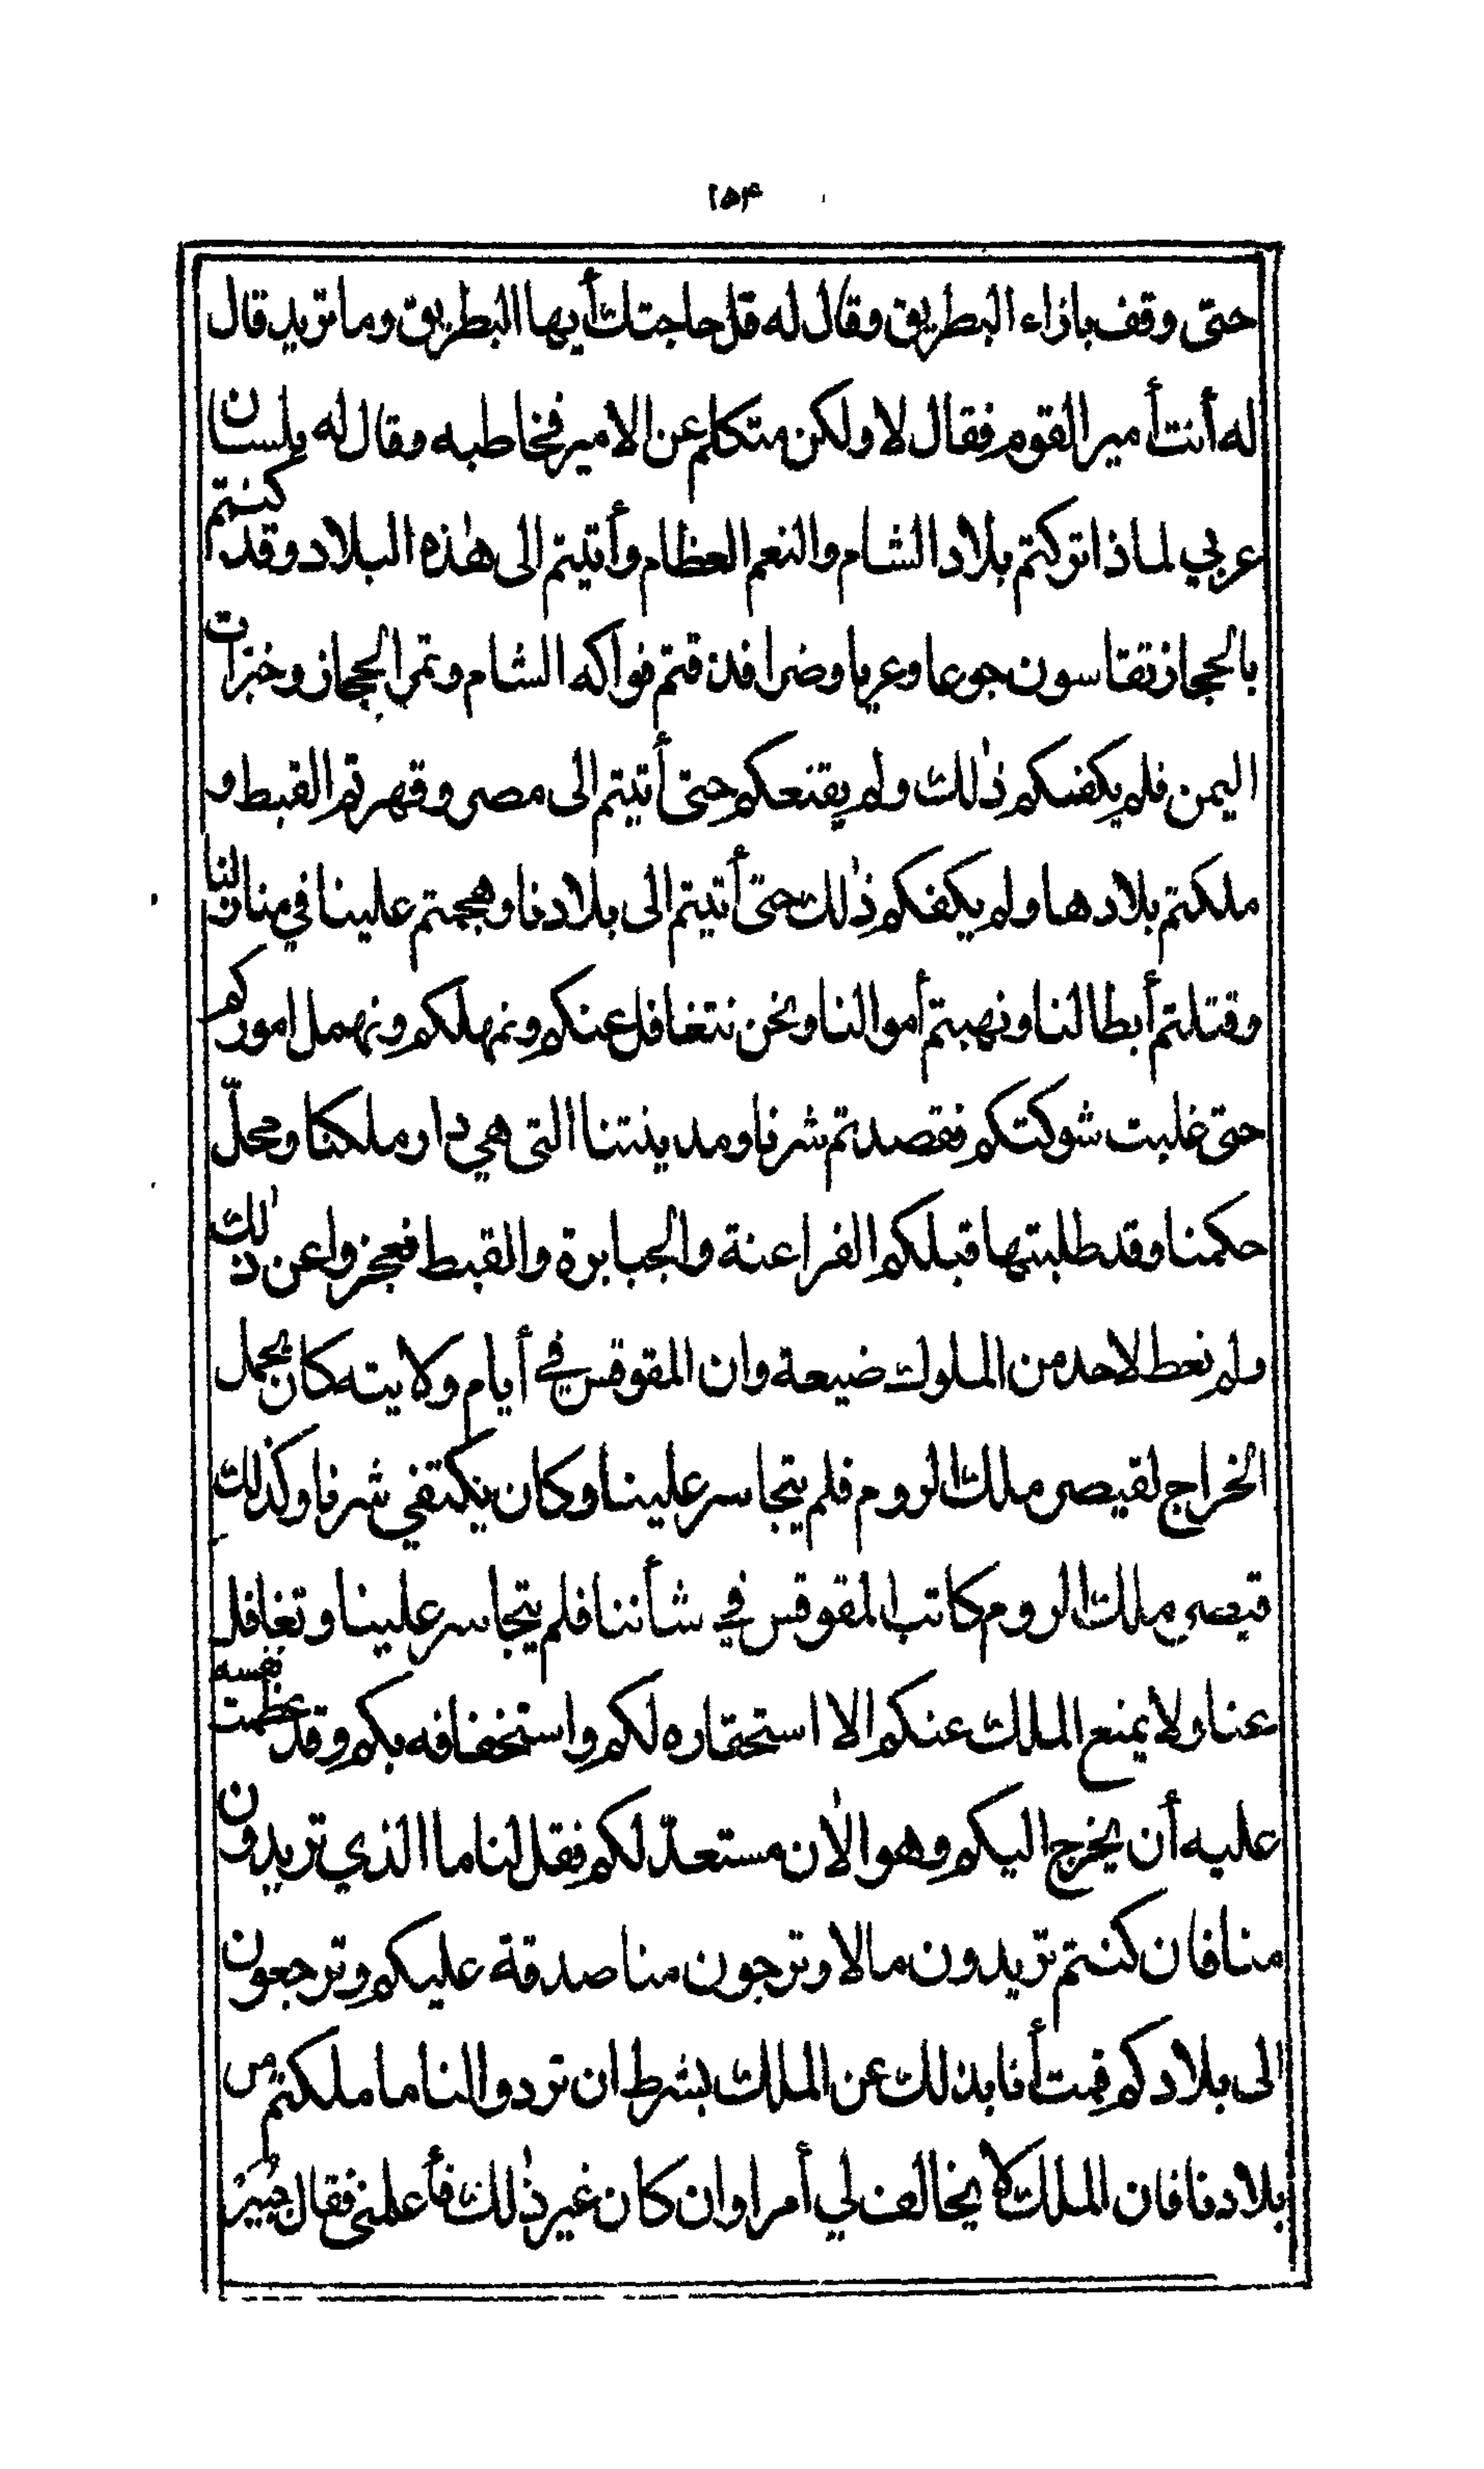 ۱۵۴
حتى وقف بازاء البطريق وقال له قل حاجتك أيها البطريق وما تريد قال
له أنت أمير القوم فقال لا ولكن متكلم عن الامير فخاطبه وقال له بلسان
عربي لماذا تركتم بلاد الشام والنعم العظام وأتيتم الى هٰذه البلاد وقد كنتم
بالحجاز تقاسون جوعا وعريا وضرا فذقتم فواكه الشام وتمر الحجاز وخبرات
اليمن فلم يكفكم ذٰلك ولم يقنعكم حتى أتيتم الى مصر وقهرتم القبط و
ملكتم بلادها ولم يكفكم ذٰلك حتى أتيتم الى بلادنا وهجمتم علينا في منازلنا
وقتلتم أبطالنا ونهبتم أموالنا ونحن نتغافل عنكم ونمهلكم ونهمل اموركم
حتى غلبت شوكتكم فقصدتم شرنا ومدينتنا التى هي دار ملكنا ومحلّ
حكمنا وقد طلبتها قبلكم الفراعنة والجبابرة والقبط فعجزوا عن ذٰلك
ولم نعط لاحد من الملوك ضيعة وان المقوقس في أيام ولايته كان يحمل
الخراج لقيصر ملك الروم فلم يتجاسر علينا وكان يكتفي شرنا وكذلك
قيصر ملك الروم كاتب المقوقس في شأننا فلم يتجاسر علينا وتغافل
عنا ولا يمنع الملك عنكم الا استحقاره لكم واستخفافه بكم وقد عظمت نفسه
عليه أن يخرج اليكم وهو الاٰن مستعدّ لكم فقل لنا ما الذي تريدون
منا فان كنتم تريدون مالا وترجون منا صدقة عليكم وترجعون
الى بلادكم قمت أنا بذلك عن الملك بشرط ان تردوا لنا ما ملكتم من
بلادنا فان الملك لا يخالف لي أمرا وان كان غير ذٰلك فأعلمنى فقال